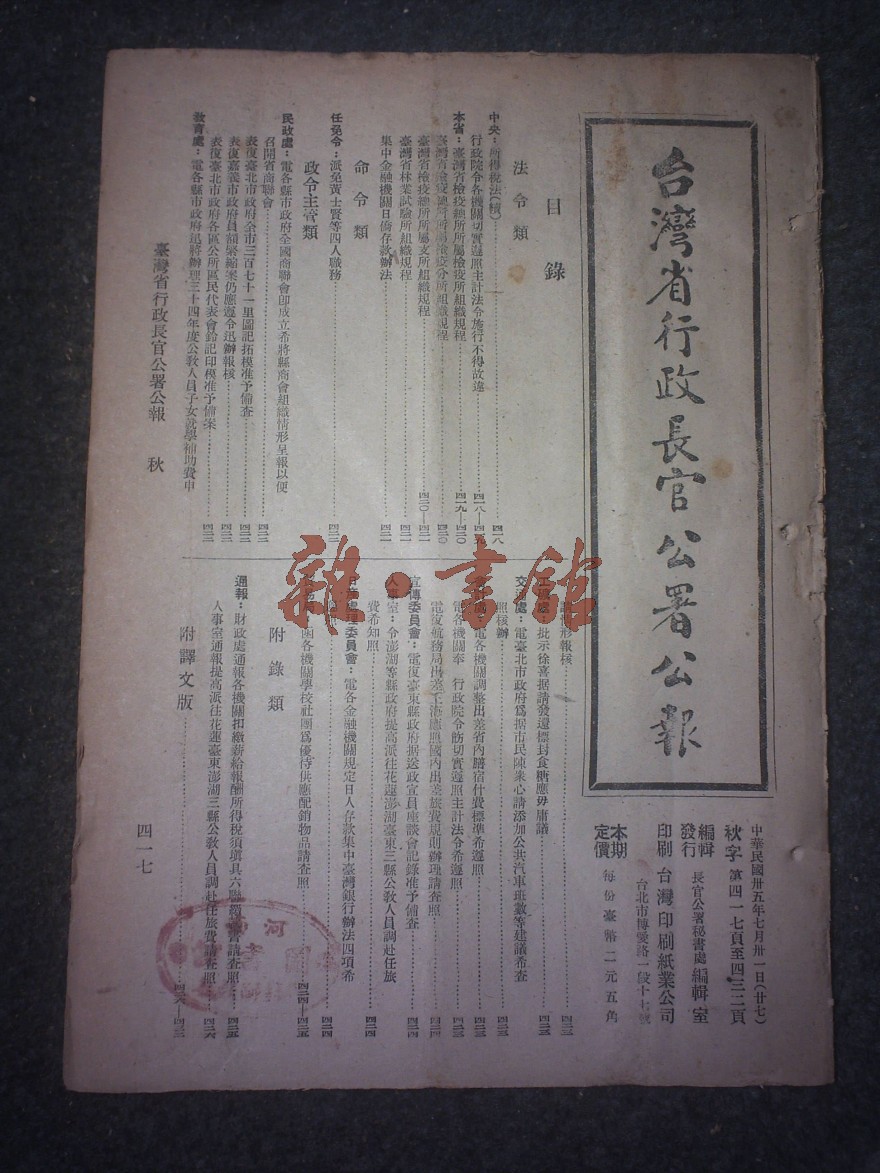 台灣省行政長官公署公報
中華民國卅五年七月卅一日(廿七)
秋字 第四一七頁至四三二頁
編輯 發行 長官公署秘書處編輯室
印刷 台灣印刷紙業公司
台北市博愛路一段十七號
本期定價 每份臺幣二元五角
目錄
法令類
中央:所得稅法(續)……四一八
行政院令各機關切實遵照主計法令施行不得故違……四一八—四一九
本省:臺灣省檢疫總所所屬檢疫所組織規程……四一九—四二〇
臺灣省檢疫總所所屬檢疫分所組織規程……四二〇
臺灣省檢疫總所所屬支所組織規程……四二〇—四二一
臺灣省林業試驗所組織規程……四二一
集中金融機關日僑存款辦法……四二一
命令類
任免令:派免黃士賢等四人職務……四二二
政令主管類
民政處:電各縣市政府全國商聯會卽成立希將縣商會組織情形呈報以便
召開省商聯會……四二二
表復臺北市政府全市三百七十一里圖記拓模准予備查……四二二
表復嘉義市政府員額緊縮案仍應遵令迅辦報核……四二二
表復臺北市政府各區公所區民代表會鈐記印模准予備案……四二二
教育處:電各縣市政府迅將辦理三十四年度公教人員子女就學補助費申
情形報核……四二三
批示徐喜据請發還標封食糖應毋庸議……四二三
交通處:電臺北市政府爲据市民陳秉心請添加公共汽車班數等建議希查
照核辦……四二三
電各機關調整出差省內膳宿什費標準希遵照……四二三
電各機關奉 行政院令飭切實遵照主計法令希遵照……四二三
電復航務局出差上海應照國內出差旅費規則辦理請查照……四二四
宣傳委員會:電復臺東縣政府据送政宣員座談會記錄准予備查……四二四
人事室:令澎湖等縣政府提高派往花蓮澎湖臺東三縣公教人員調赴任旅
費希知照……四二四
委員會:電各金融機關規定日人存款集中臺灣銀行辦法四項希
……四二四
函各機關學校社團爲優待供應配銷物品請查照……四二四—四二五
附錄類
通報:財政處通報各機關扣繳薪給報酬所得稅須填具六聯……請查照……四二五
人事室通報提高派往花蓮臺東澎湖三縣公教人員調赴任旅費請查照……四二六
附譯文版
臺灣省行政長官公署公報 秋 四一七
雜·書館